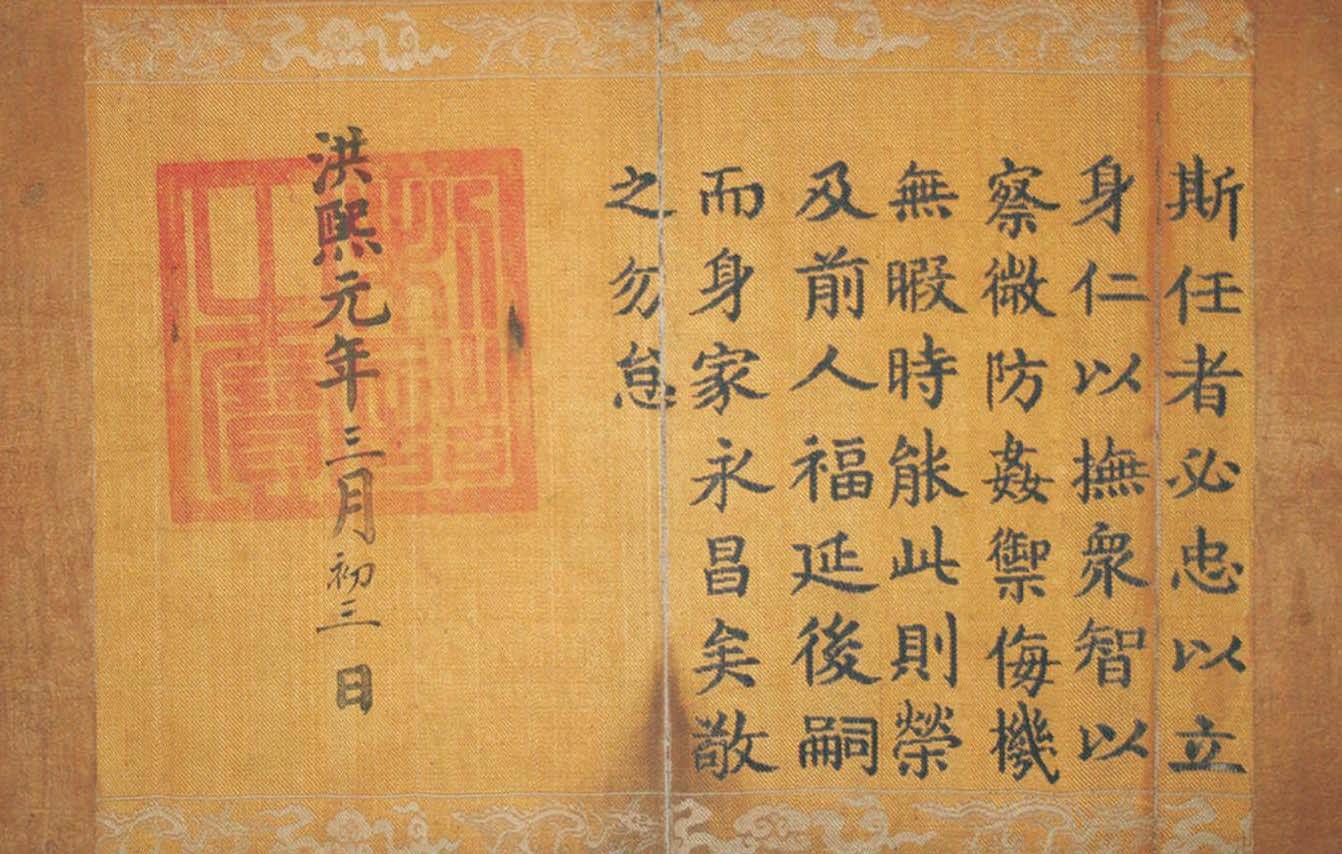 斯任者必忠以立
身仁以撫衆智以
察微防姦禦侮機
無暇時能此則榮
及前人福延後嗣
而身家永昌矣敬
之勿怠
洪熙元年三月初三日